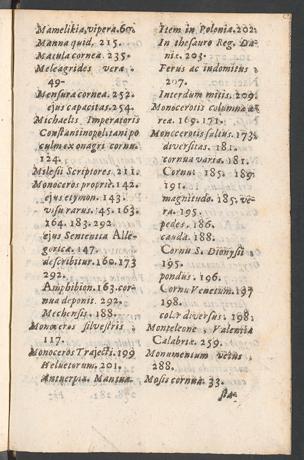 Mamelikia, vipera. 67.
Manna quid. 215.
Macula cornea. 235.
Meleagrides vera
49.
Mensura cornea. 252.
ejus capacitas. 254.
Michaelis Imperatoris
Constantinopolitani po
culum ex onagri cornu.
124.
Milesii Scriptores 211.
Monoceros propriè. 142.
ejus etymon. 143.
visu rarus. 45. 163.
164. 183. 292
ejus Sententia Alle-
gorica. 147.
describitur. 160. 173
292.
Amphibion. 163. cor-
nua deponit. 292.
Mechensis. 188.
Monoceros silvestris
117.
Monoceros Trajecti. 199
Helvetorum. 201.
Antverpiæ. Mantuæ.
Item in Polonia. 202.
In thesauro Reg. Da-
niæ. 203.
Ferus ac indomitus
207.
Interdum mitis. 209.
Monocerotis columnæ æ-
rea. 169. 171.
Monocerotis salius. 173.
diversitas. 181.
cornua varia. 181.
Cornu. 185. 189.
191.
magnitudo. 185. ve-
ra. 195.
pedes. 186.
cauda. 188.
Cornu S. Dionysii
195.
pondus. 196.
Cornu Venetum. 197
198.
color diversus. 198.
Monteleone, Valentia
Calabriæ. 259.
Monumentum vetus
288.
Mosis cornua. 33.